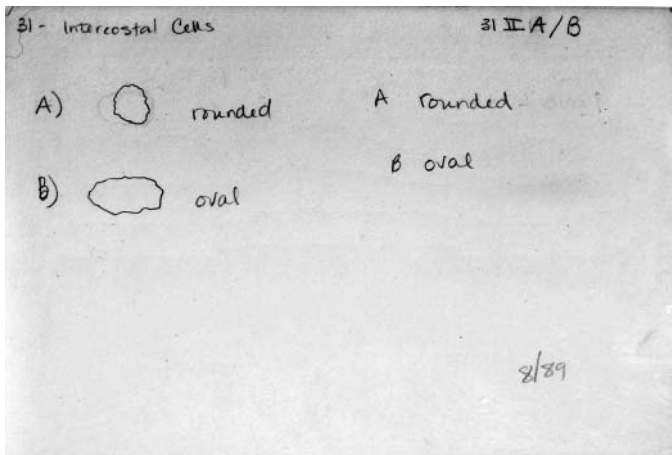 31 - Intercostal Cells
31 II A/B
A) rounded
A rounded
B oval
B) oval
8/89